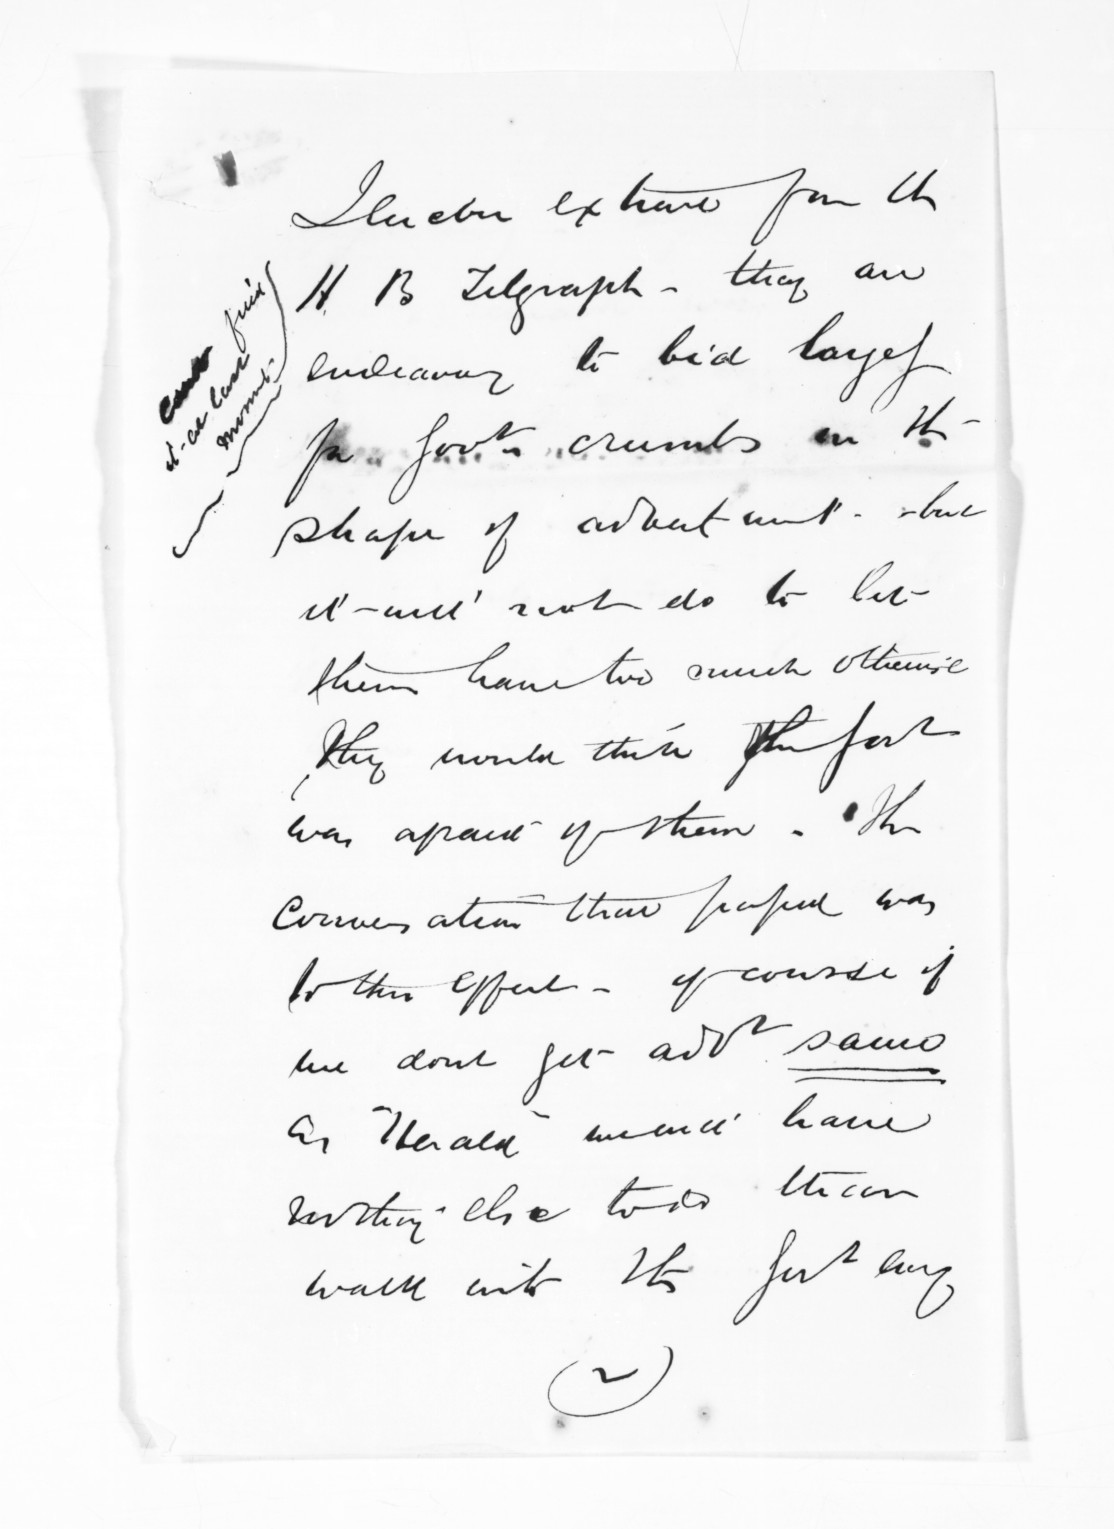 I enclose extract from the
H B Telegraph - they are
endeavoring to bid largely
for Govt crumbs in the
shape of advertments - but
it will not do to let
them have too much otherwise
they would think the Govt
was afraid of them - The
conversation that passed was
to this effect - of course if
we dont get advt same
as "Herald" we will have
nothing else to do than
walk into the Govt every
(2)
cant find
it - at last
moment